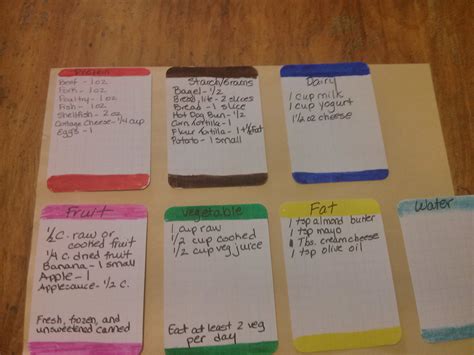 Protein
Beef - 1 oz
Pork - 1oz
Poultry - 1oz
Fish - 1oz
Shellfish - 2 oz
Cottage Cheese - 1/4 cup
Eggs - 1
Starch/Grains
Bagel - 1/2
Bread, lite - 2 slices
Bread - 1 slice
Hot Dog Bun - 1/2
Corn tortilla - 1
Flour tortilla - 1 + 1/2 Fat
Potato - 1 small
Dairy
1 cup milk
1 cup yogurt
1 1/2 oz cheese
Fruit
1/2 C. raw or
cooked fruit
1/4 C. dried fruit
Banana - 1 small
Apple - 1
Applesauce - 1/2 C.
Fresh, frozen, and
unsweetened canned
Vegetable
1 cup raw
1/2 cup cooked
1/2 cup veg juice
Eat at least 2 veg
per day
Fat
1 tsp almond butter
1 tsp mayo
1 Tbs. cream cheese
1 tsp olive oil
Water